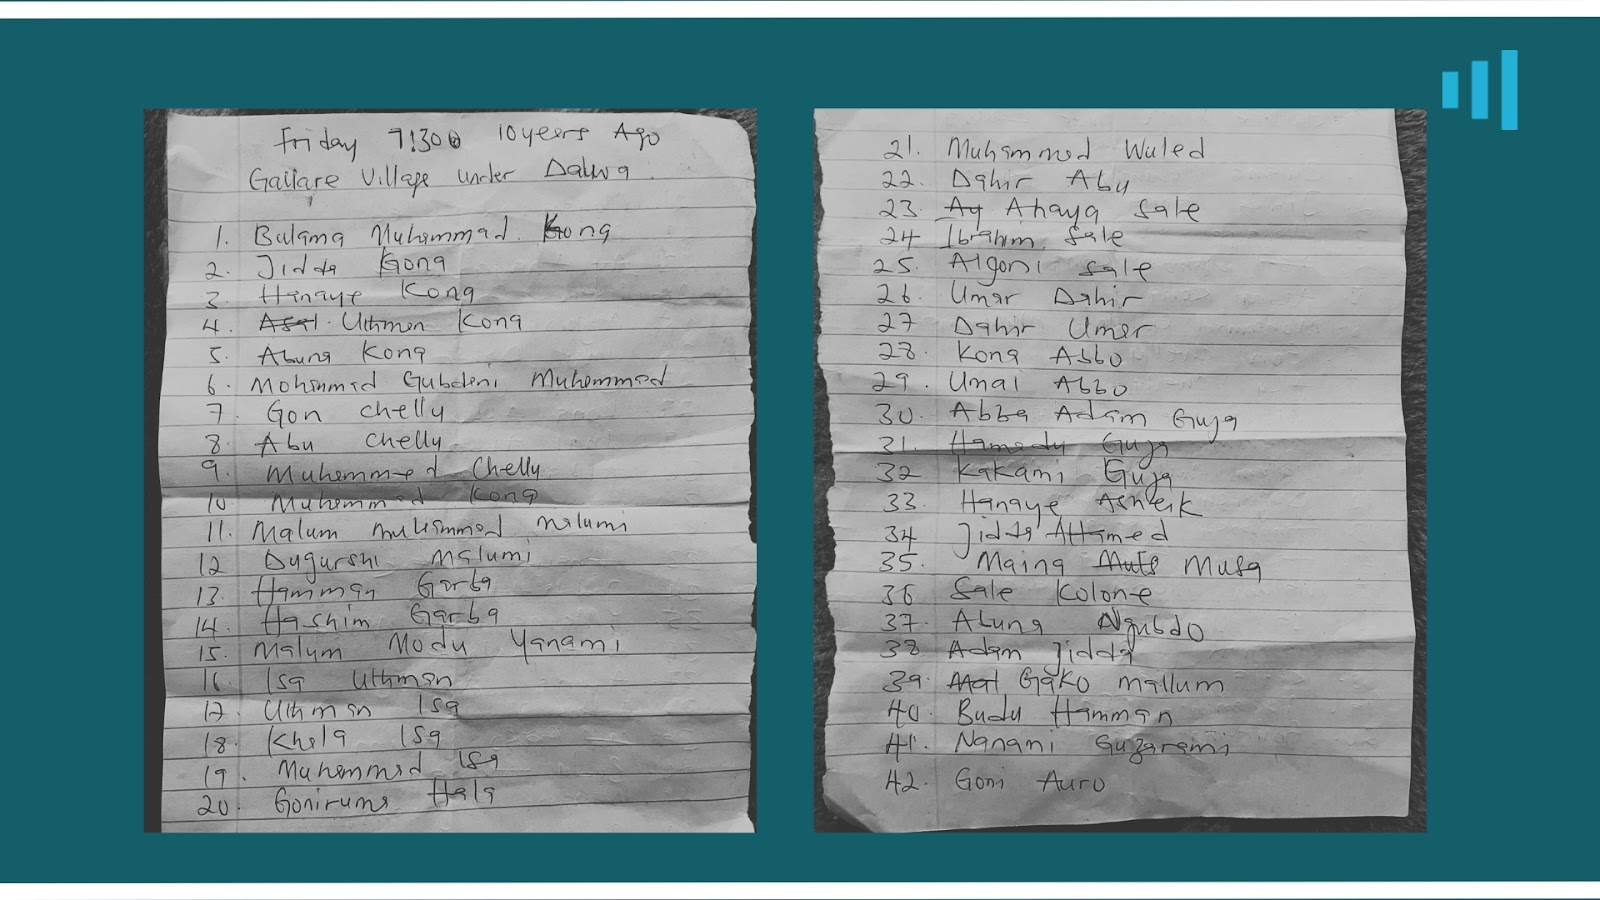 Friday 7:30 10 years Ago
Gallare Village under Dalwa.
1. Bulama Muhammad Kona
2. Jidda Kona
3. Hanaye Kona
4. Uthman Kona
5. Abuna Kona
6. Mohammad Gubdeni Muhammad
7. Gon chelly
8. Abu chelly
9. Muhammed Chelly
10 Muhammad Kona
11. Malum muhammad malumi
12 Dugurshi malumi
13. Hamman Garba
14. Hashim Garba
15. Malum Modu Yanami
16. Isa Uthman
17. Uthman Isa
18. Khala Isa
19. Muhammad Isa
20. Gonirums Hala
21. Muhammed Waled
22. Dahir Abu
23. Ay Ahaya Sale
24 Ibrahim Sale
25. Algoni Sale
26. Umar Dahir
27 Dahir Umar
28. Kona Abbo
29. Umai Abbo
30. Abba Adam Guja
31. Hamadu Guja
32 Kakami Guja
33. Hanaye Asheik
34 Jidda Ahamed
35. Maina Musa
36 Sale Kolone
37. Abuna Ngubdo
38 Adam Jidda
39. Gako mallum
40. Budu Hamman
41. Nanami Guzarami
42. Goni Auro